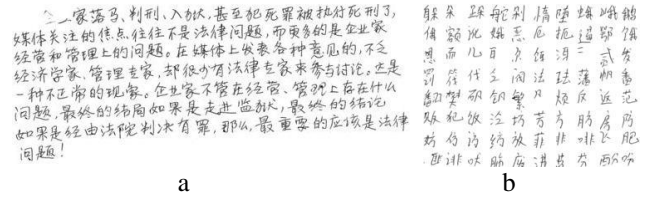 家落马、判刑、入狱,甚至犯死罪被执行死刑了,
媒体关注的焦点往往不是法律问题,而更多的是企业家
经营和管理上的问题。在媒体上发表各种意见的,不乏
经济学家、管理专家,却很少有法律专家来参与讨论。这是
一种不正常的现象。企业家不管在经营、管理上存在什么
问题,最终的结局如果是走进监狱,最终的结论
如果是经由法院判决有罪,那么,最重要的应该是法律
问题!
a
躲 朵 跺 舵 剁 惰 堕 蛾 峨 鹅
俄 额 讹 娥 恶 厄 扼 遏 鄂 饿
恩 而 儿 耳 尔 饵 洱 二 贰 发
罚 筏 伐 乏 阀 法 珐 藩 帆 番
翻 樊 矾 钒 繁 凡 烦 反 返 范
贩 犯 饭 泛 坊 芳 方 肪 房 防
妨 仿 访 纺 放 菲 非 啡 飞 肥
匪 诽 吠 肺 废 沸 费 芬 酚 吩
b